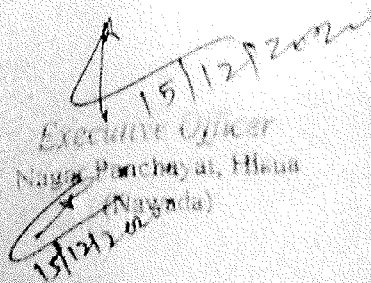 15/12/2020
Executive Officer
Nagar Panchayat, Hisua
(Nawada)
15/12/2020